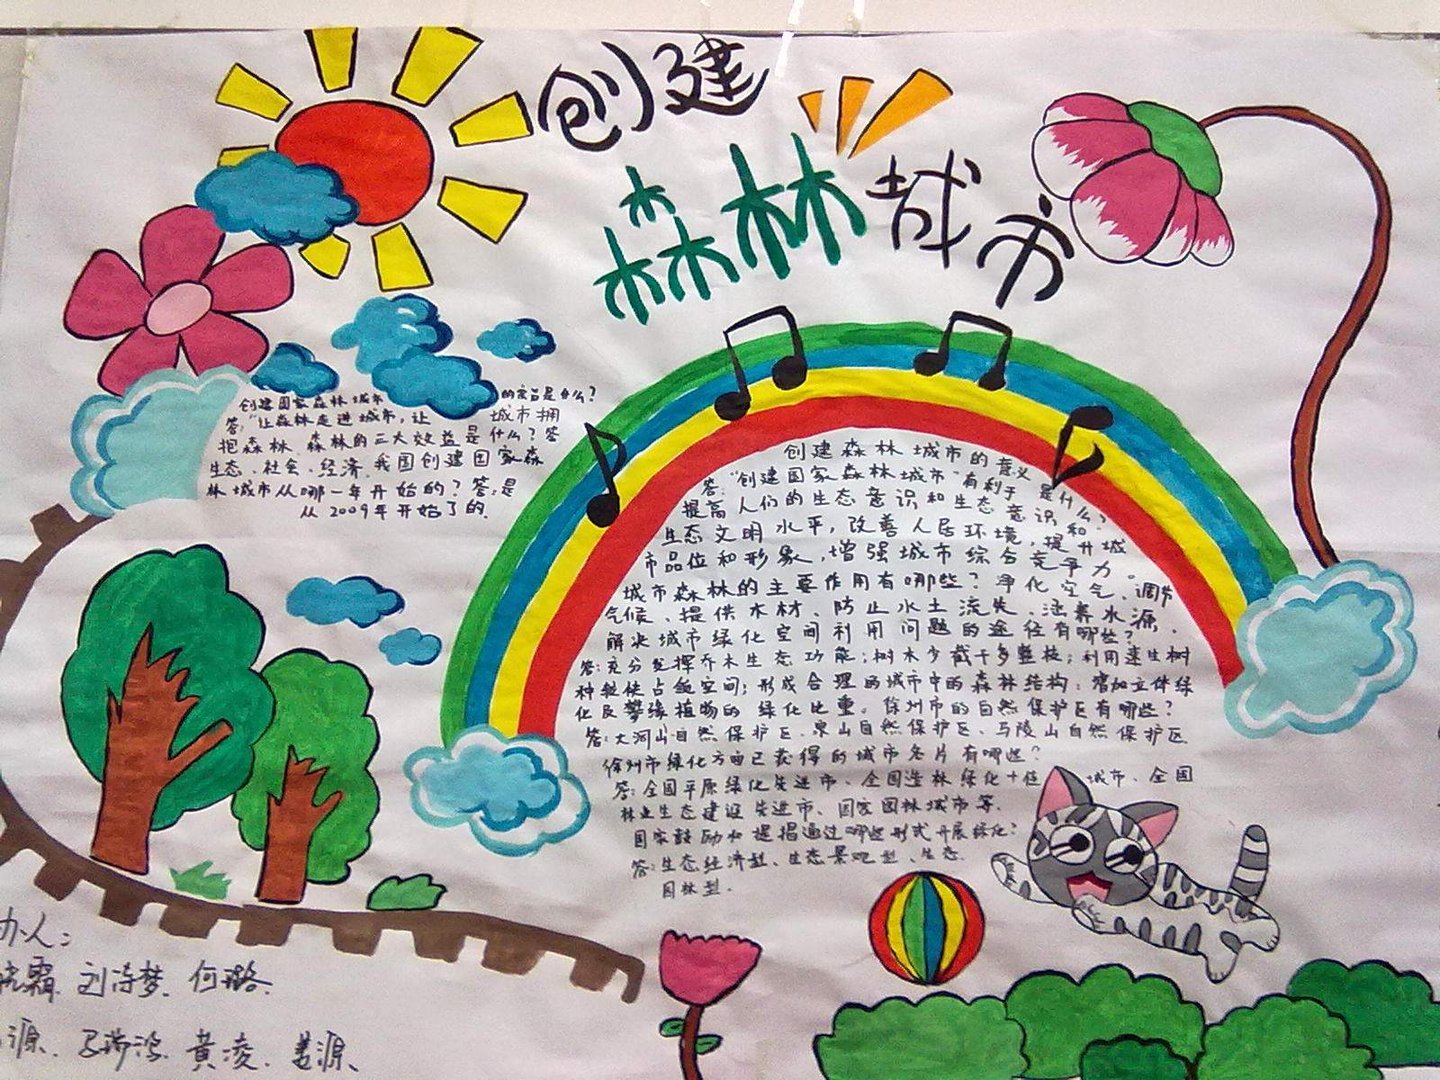 创建
森林城市
创建国家森林城市的宗旨是什么?
答:"让森林走进城市,让城市拥
抱森林。森林的三大效益是什么?答
生态、社会、经济。我国创建国家森
林城市从哪一年开始的?答:是
从2009年开始了的.
创建森林城市的意义是什么?
答:"创建国家森林城市"有利于
提高人们的生态意识和生态意识和
生态文明水平,改善人居环境,提升城
市品位和形象,增强城市综合竞争力。
城市森林的主要作用有哪些?净化空气、调节
气候、提供木材、防止水土流失、涵养水源.
解决城市绿化空间利用问题的途径有哪些?
答:充分发挥乔木生态功能;树木少截干多整枝;利用速生树
种轻使占领空间;形成合理的城市中的森林结构;增加立体绿
化及攀缘植物的绿化比重。徐州市的自然保护区有哪些?
答:大河山自然保护区、泉山自然保护区、马陵山自然保护区
徐州市绿化方面已获得的城市名片有哪些?
答:全国平原绿化先进市、全国造林绿化十佳城市、全国
林业生态建设先进市、国家园林城市等.
国家鼓励和提倡通过哪些形式开展绿化?
答:生态经济型、生态景观型、生态
园林型.
办人:
霜、刘诗梦、何璐.
源、黄凌、姜源、